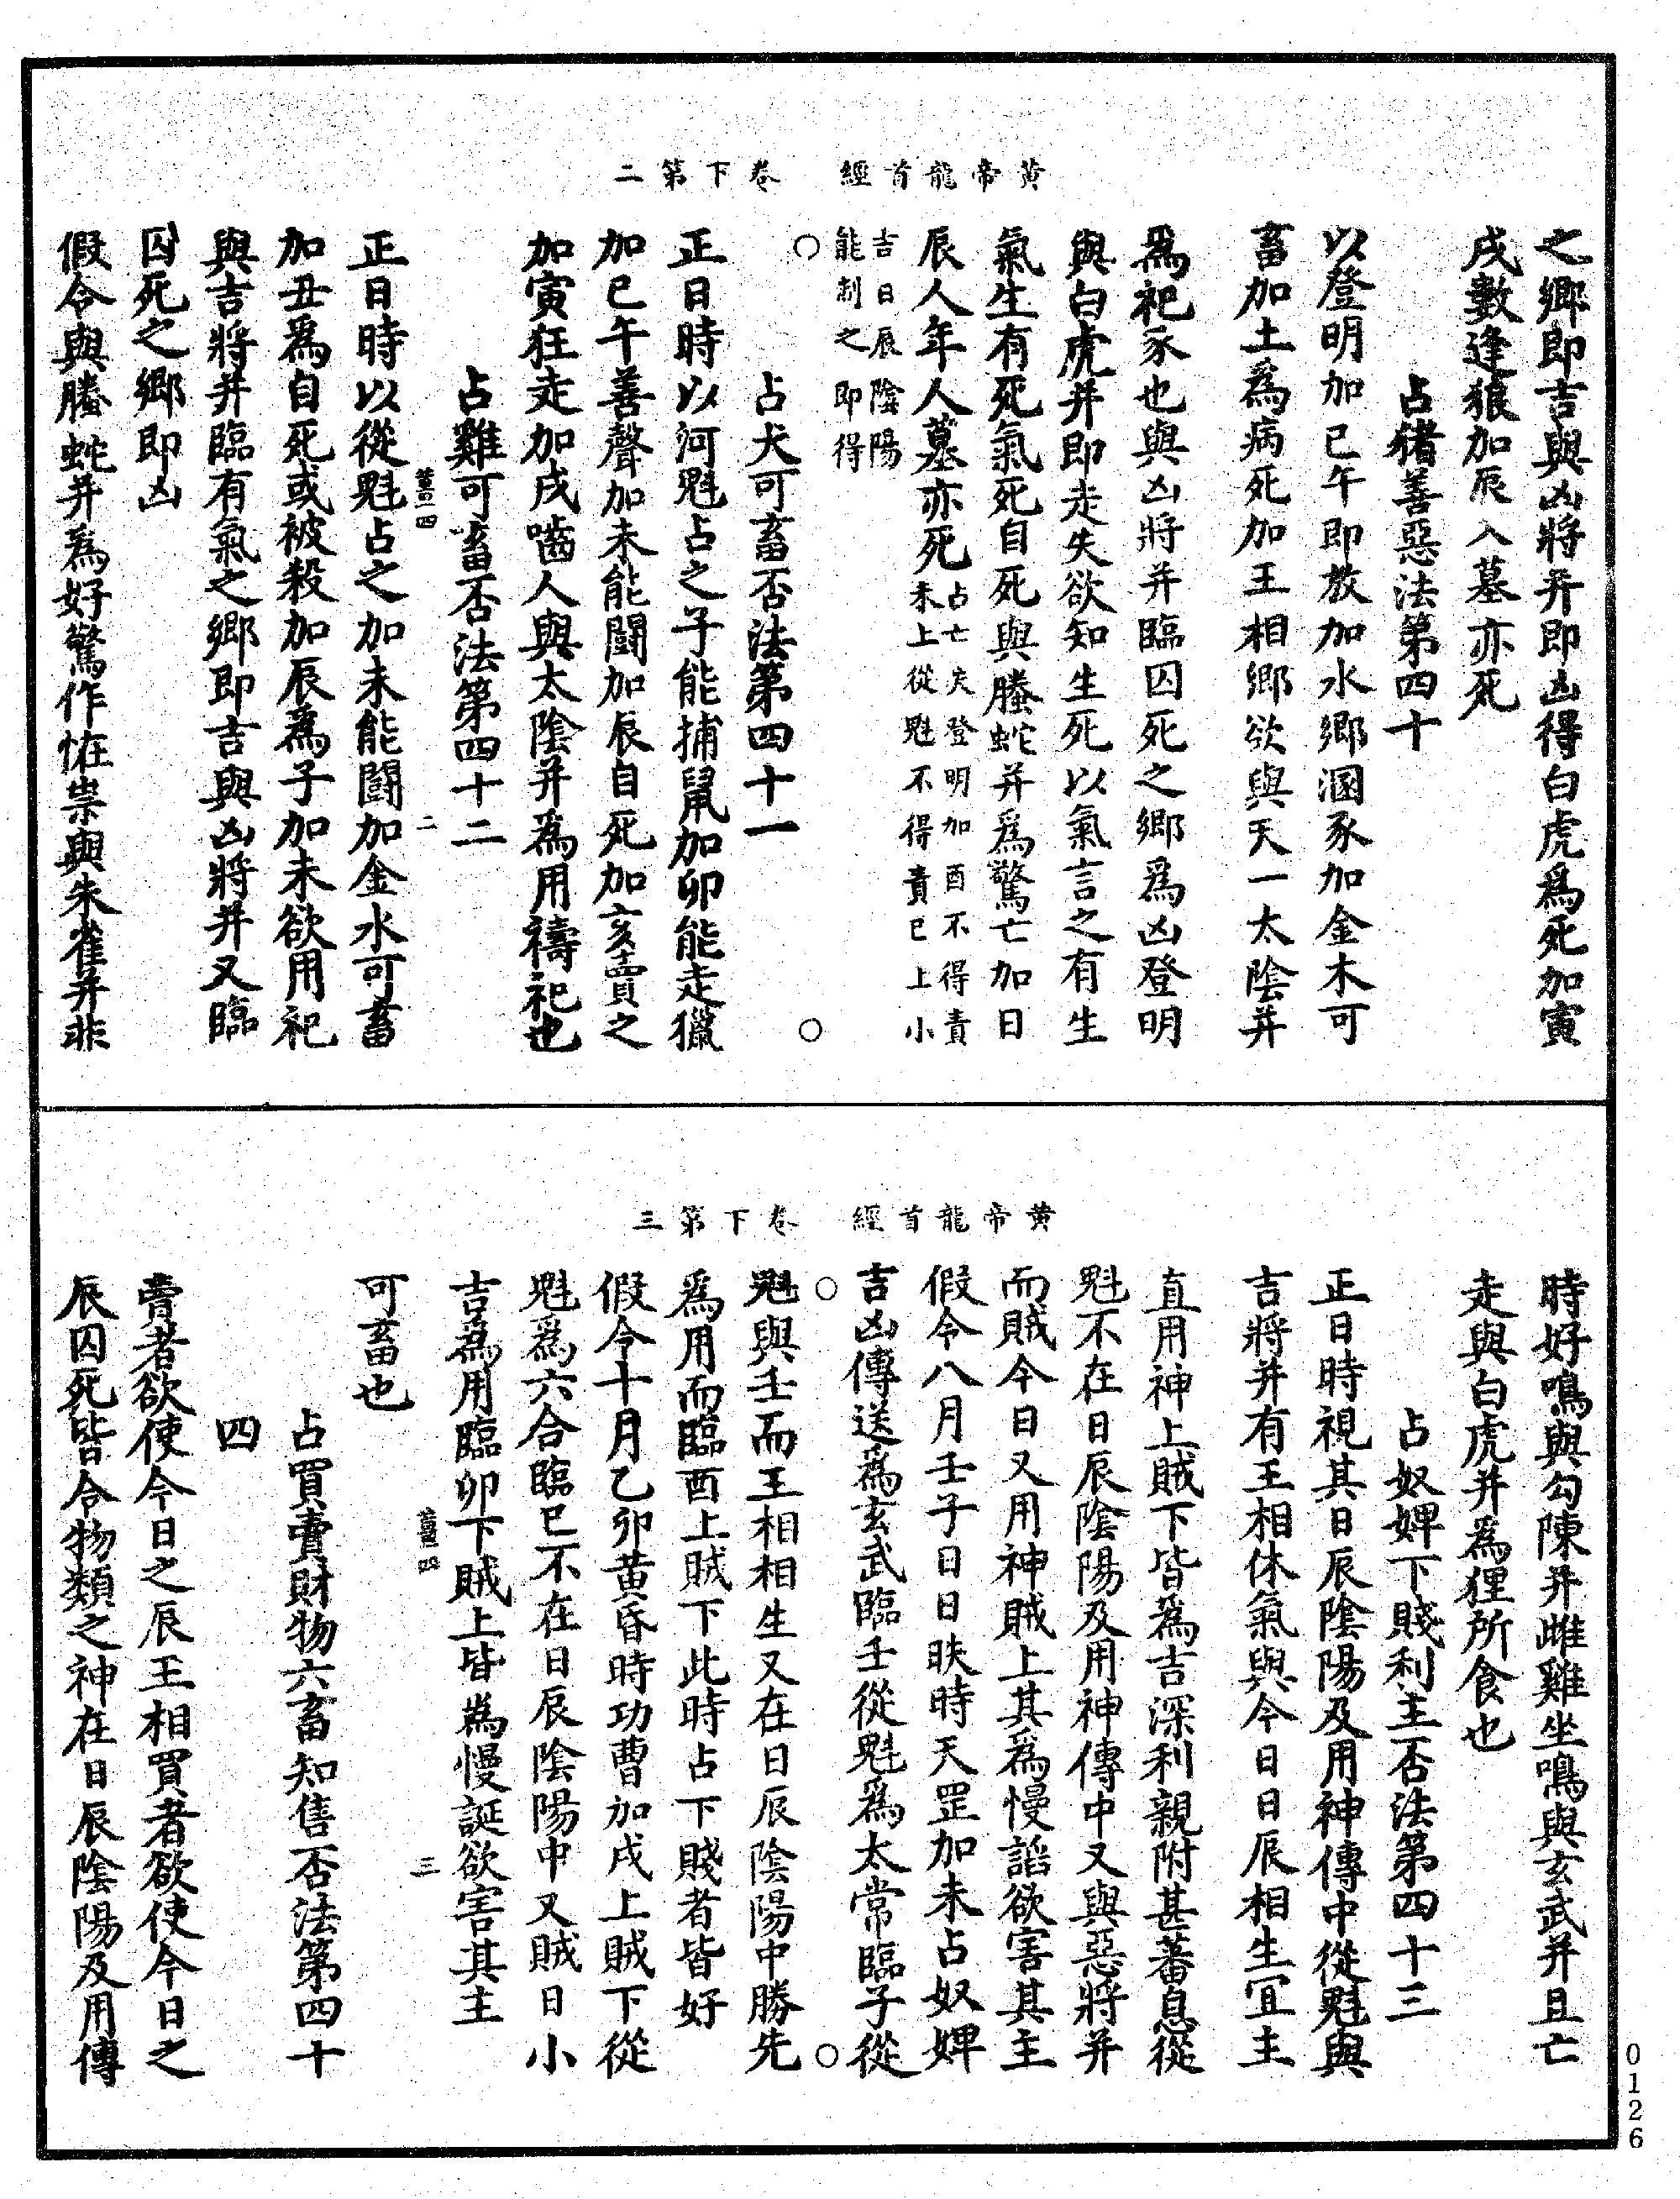 黄帝龍首經　卷下第二
之鄉即吉與凶將并即凶得白虎爲死加寅
戌數逢狼加辰入墓亦死
占豬善惡法第四十
以登明加巳午即放加水鄉溷豕加金木可
畜加土爲病死加王相鄉欲與天一太陰并
爲祀豕也與凶將并臨囚死之鄉爲凶登明
與白虎并即走失欲知生死以氣言之有生
氣生有死氣死自死與螣蛇并爲驚亡加日
辰人年人墓亦死占亡失登明加酉不得責
未上從魁不得責巳上小
吉日辰陰陽
能制之即得
占犬可畜否法第四十一
正日時以河魁占之子能捕鼠加卯能走獵
加巳午善聲加未能鬪加辰自死加亥賣之
加寅狂走加戌嚙人與太陰并爲用禱祀也
占雞可畜否法第四十二
二
正日時以從魁占之加未能鬪加金水可畜
加丑爲自死或被殺加辰爲子加未欲用祀
與吉將并臨有氣之鄉即吉與凶將并又臨
囚死之鄉即凶
假令與螣蛇并爲好驚作恠祟與朱雀并非
黄帝龍首經　卷下第三
時好鳴與勾陳并雌雞坐鳴與玄武并且亡
走與白虎并爲狸所食也
占奴婢下賤利主否法第四十三
正日時視其日辰陰陽及用神傳中從魁與
吉將并有王相休氣與今日日辰相生宜主
直用神上賊下皆爲吉深利親附甚蕃息從
魁不在日辰陰陽及用神傳中又與惡將并
而賊今日又用神賊上其爲慢謟欲害其主
假令八月壬子日日昳時天罡加未占奴婢
吉凶傳送爲玄武臨壬從魁爲太常臨子從
魁與壬而王相相生又在日辰陰陽中勝先
爲用而臨酉上賊下此時占下賤者皆好
假令十月乙卯黄昏時功曹加戌上賊下從
魁爲六合臨巳不在日辰陰陽中又賊日小
吉爲用臨卯下賊上皆爲慢誕欲害其主
三
可畜也
占買賣財物六畜知售否法第四十
四
賣者欲使今日之辰王相買者欲使今日之
辰囚死皆令物類之神在日辰陰陽及用傳
0126